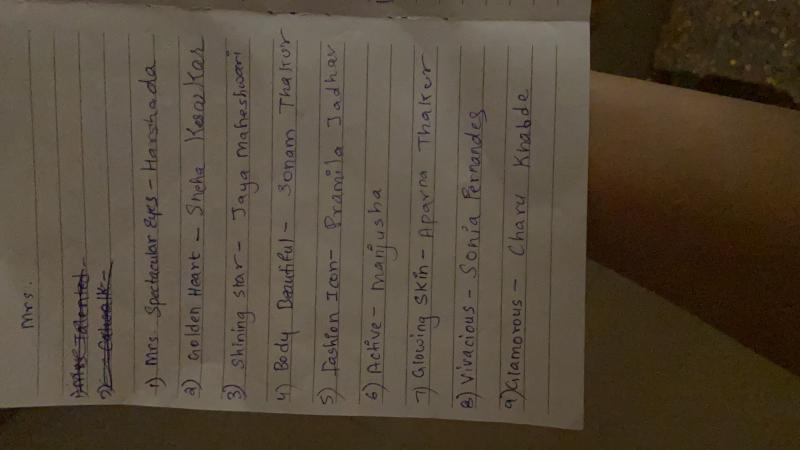 Mrs.
1) Miss Talented -
2) Catwalk -
1) Mrs Spectacular Eyes - Harshada
2) Golden Heart - Sneha Kesarkar
3) Shining Star - Jaya Maheshwari
4) Body Beautiful - Sonam Thakur
5) Fashion Icon - Pramila Jadhav
6) Active - Manjusha
7) Glowing Skin - Aparna Thalker
8) Vivacious - Sonia Fernandes
9) Glamorous - Charu Khabde